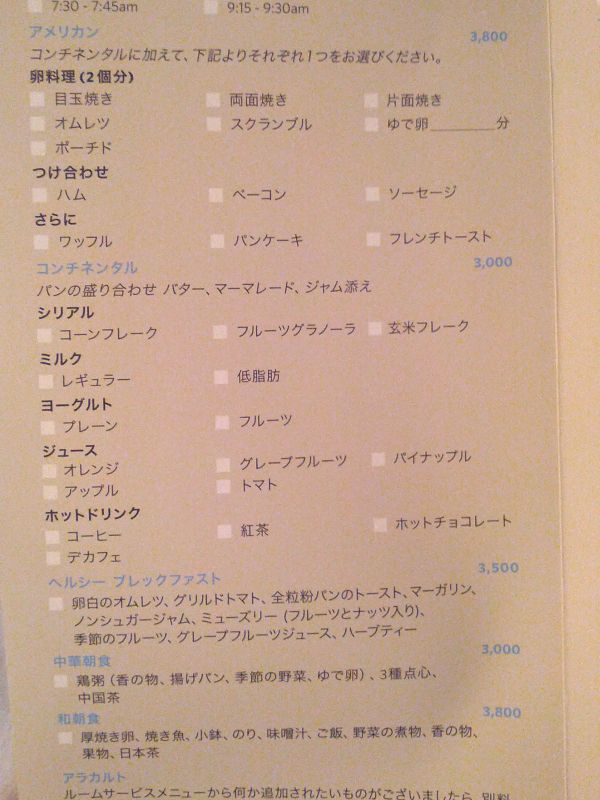 7:30 - 7:45am 9:15 - 9:30am
アメリカン 3,800
コンチネンタルに加えて、下記よりそれぞれ1つをお選びください。
卵料理(2個分)
目玉焼き 両面焼き 片面焼き
オムレツ スクランブル ゆで卵________分
ポーチド
つけ合わせ
ハム ベーコン ソーセージ
さらに
ワッフル パンケーキ フレンチトースト
コンチネンタル 3,000
パンの盛り合わせ バター、マーマレード、ジャム添え
シリアル
コーンフレーク フルーツグラノーラ 玄米フレーク
ミルク
レギュラー 低脂肪
ヨーグルト
プレーン フルーツ
ジュース
オレンジ グレープフルーツ パイナップル
アップル トマト
ホットドリンク
コーヒー 紅茶 ホットチョコレート
デカフェ
ヘルシー ブレックファスト 3,500
卵白のオムレツ、グリルドトマト、全粒粉パンのトースト、マーガリン、
ノンシュガージャム、ミューズリー (フルーツとナッツ入り)、
季節のフルーツ、グレープフルーツジュース、ハーブティー
中華朝食 3,000
鶏粥 (香の物、揚げパン、季節の野菜、ゆで卵) 、3種点心、
中国茶
和朝食 3,800
厚焼き卵、焼き魚、小鉢、のり、味噌汁、ご飯、野菜の煮物、香の物、
果物、日本茶
アラカルト
ルームサービスメニューから何か追加されたいものがございましたら、別料